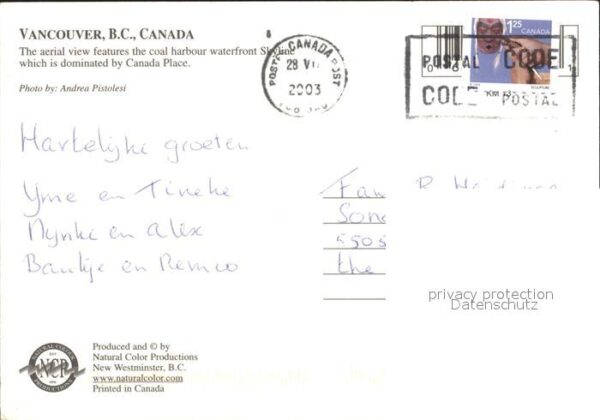 VANCOUVER, B.C., CANADA
The aerial view features the coal harbour waterfront Skyline
which is dominated by Canada Place.
Photo by: Andrea Pistolesi
CANADA
POSTAL POST
28 VII
2003
1.25
CANADA
POSTAL CODE
CODE POSTAL
Hartelijke groeten
Yme en Tineke
Nynke en Alex
Bautje en Remco
Fam
R
Son
5505
the
privacy protection
Datenschutz
NATURAL COLOR
NCP
PRODUCTIONS
Produced and © by
Natural Color Productions
New Westminster, B.C.
www.naturalcolor.com
Printed in Canada